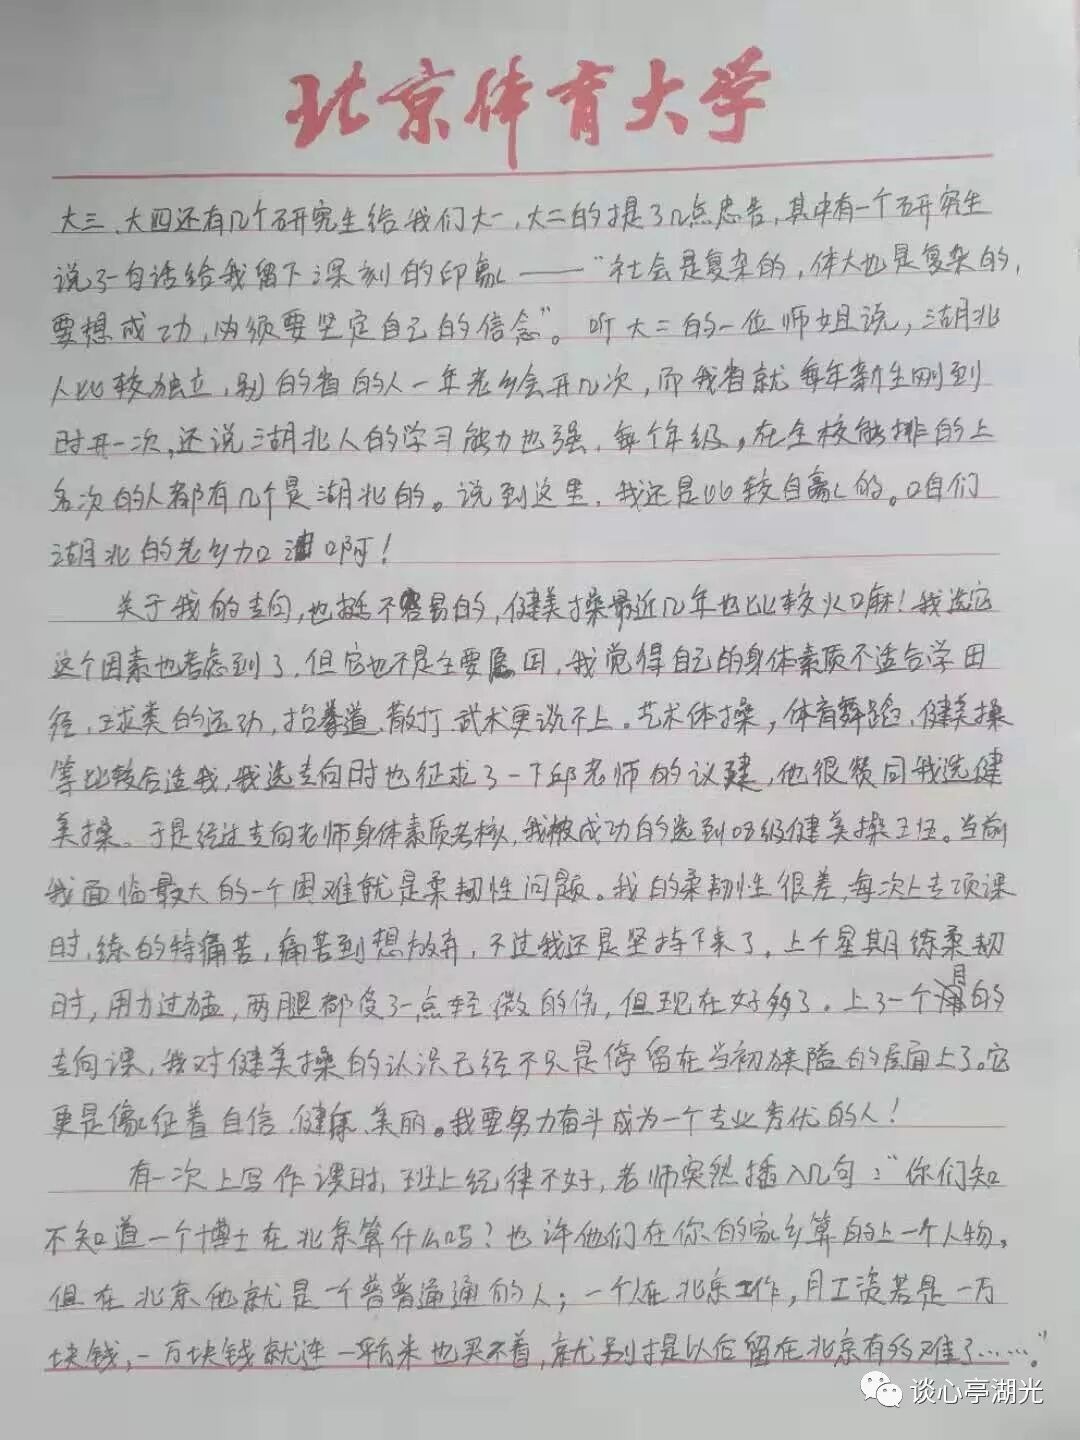 北京体育大学
大三、大四还有几个研究生给我们大一、大二的提了几点忠告,其中有一个研究生
说了一句话给我留下深刻的印象——“社会是复杂的,体大也是复杂的,
要想成功,必须要坚定自己的信念”。听大二的一位师姐说,湖北
人比较独立,别的省的人一年老乡会开几次,而我省就每年新生刚到
时开一次,还说湖北人的学习能力也强,每个年级,在全校能排的上
名次的人都有几个是湖北的。说到这里,我还是比较自豪的。咱们
湖北的老乡加油啊!
关于我的专向,也挺不容易的,健美操最近几年也比较火嘛!我选它
这个因素也考虑到了,但它也不是主要原因,我觉得自己的身体素质不适合学田
径,球类的运动,抬拳道、散打、武术更谈不上。艺术体操,体育舞蹈、健美操
等比较合适我,我选专向时也征求了一下邱老师的议建,他很赞同我选健
美操。于是经过专向老师身体素质考核,我被成功的选到08级健美操王伍。当前
我面临最大的一个困难就是柔韧性问题。我的柔韧性很差,每次上专项课
时,练的特痛苦,痛苦到想放弃,不过我还是坚持下来了,上个星期练柔韧
时,用力过猛,两腿都受了一点轻微的伤,但现在好多了。上了一个月的
专向课,我对健美操的认识已经不只是停留在当初狭隘的层面上了。它
更是像征着自信、健康、美丽。我要努力奋斗成为一个专业秀优的人!
有一次上写作课时,班上纪律不好,老师突然插入几句:“你们知
不知道一个博士在北京算什么吗?也许他们在你的家乡算的上一个人物,
但在北京他就是一个普普通通的人;一个人在北京工作,月工资若是一万
块钱,一万块钱就连一平米也买不着,就别提以后留在北京有多难了……”
谈心亭湖光